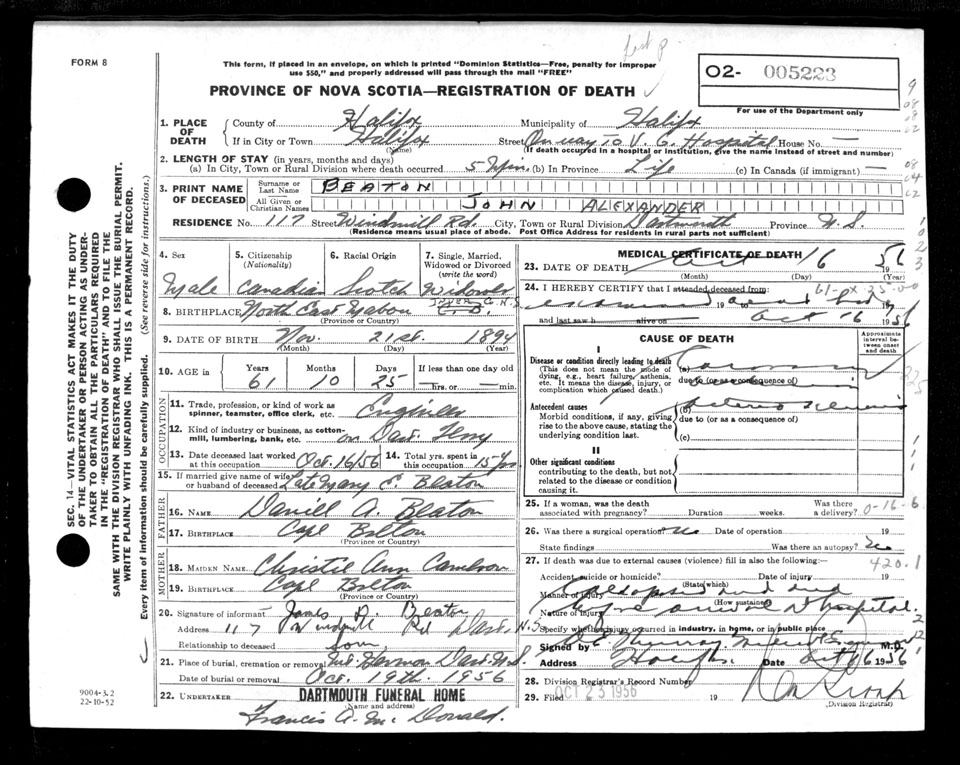 FORM 8
This form, if placed in an envelope, on which is printed "Dominion Statistics—Free, penalty for improper
use $50," and properly addressed will pass through the mail "FREE"
PROVINCE OF NOVA SCOTIA—REGISTRATION OF DEATH
O2- 005223
For use of the Department only
1. PLACE OF DEATH { County of Halifax Municipality of Halifax
If in City or Town Halifax (Name) Street On way to V. G. Hospital House No. —
(If death occurred in a hospital or institution, give the name instead of street and number)
2. LENGTH OF STAY (in years, months and days)
(a) In City, Town or Rural Division where death occurred 5 Min. (b) In Province Life (c) In Canada (if immigrant) —
3. PRINT NAME OF DECEASED { Surname or Last Name BEATON
All Given or Christian Names JOHN ALEXANDER
RESIDENCE No. 117 Street Windmill Rd. City, Town or Rural Division Dartmouth Province N.S.
(Residence means usual place of abode. Post Office Address for residents in rural parts not sufficient)
4. Sex Male
5. Citizenship (Nationality) Canadian
6. Racial Origin Scotch
7. Single, Married, Widowed or Divorced (write the word) Widower
8. BIRTHPLACE North East Mabou
(Province or Country)
9. DATE OF BIRTH Nov. 21st. 1894
(Month) (Day) (Year)
10. AGE in { Years 61 Months 10 Days 25 If less than one day old —hrs. or —min.
OCCUPATION
11. Trade, profession, or kind of work as spinner, teamster, office clerk, etc.
12. Kind of industry or business, as cotton-mill, lumbering, bank, etc. on Dart. Ferry
13. Date deceased last worked at this occupation Oct. 16/56
14. Total yrs. spent in this occupation 15 Yrs
15. If married give name of wife or husband of deceased Late Mary E. Beaton
FATHER
16. NAME Daniel A. Beaton
17. BIRTHPLACE Cape Breton
(Province or Country)
MOTHER
18. MAIDEN NAME Christie Ann Cameron
19. BIRTHPLACE Cape Breton
(Province or Country)
20. Signature of informant James D. Beaton
Address 117 Windmill Rd Dart. N.S.
Relationship to deceased son
21. Place of burial, cremation or removal Mt. Hermon Dart. N.S.
Date of burial or removal Oct. 19th. 1956
22. UNDERTAKER DARTMOUTH FUNERAL HOME
(Name and address)
Francis A. McDonald.
MEDICAL CERTIFICATE OF DEATH
23. DATE OF DEATH Oct 16 1956
(Month) (Day) (Year)
24. I HEREBY CERTIFY that I attended deceased from:
and last saw h alive on Oct 16 1956
CAUSE OF DEATH
Approximate interval between onset and death
I
Disease or condition directly leading to death
(This does not mean the mode of dying, e.g., heart failure, asthenia, etc. It means the disease, injury, or complication which caused death.)
(a) Coronary
due to (or as a consequence of)
Antecedent causes
Morbid conditions, if any, giving rise to the above cause, stating the underlying condition last.
(b)
due to (or as a consequence of)
(c)
II
Other significant conditions
contributing to the death, but not related to the disease or condition causing it.
25. If a woman, was the death associated with pregnancy? Duration weeks. Was there a delivery?
26. Was there a surgical operation? no Date of operation 19
State findings Was there an autopsy? no
27. If death was due to external causes (violence) fill in also the following:— 420.1
Accident, suicide or homicide? (State which) Date of injury 19
Manner of injury Collapsed and died
(How sustained)
Nature of injury before arrival at hospital.
Specify whether injury occurred in industry, in home, or in public place
Signed by M.D.
Address Date Oct 16 1956
28. Division Registrar's Record Number
29. Filed OCT 23 1956 19
(Division Registrar)
SEC. 14—VITAL STATISTICS ACT MAKES IT THE DUTY
OF THE UNDERTAKER OR PERSON ACTING AS UNDER-
TAKER TO OBTAIN ALL THE PARTICULARS REQUIRED
IN THE "REGISTRATION OF DEATH" AND TO FILE THE
SAME WITH THE DIVISION REGISTRAR WHO SHALL ISSUE THE BURIAL PERMIT.
WRITE PLAINLY WITH UNFADING INK. THIS IS A PERMANENT RECORD.
Every item of information should be carefully supplied. (See reverse side for instructions.)
9004-3.2
22-10-52